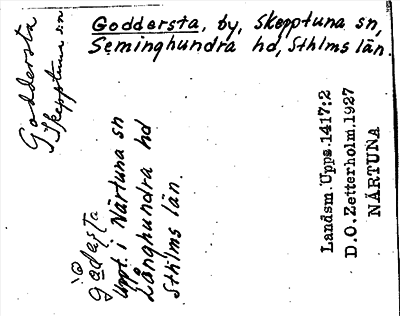 Goddersta, by, Skepptuna sn,
Seminghundra hd, Sthlms län.
Goddersta
Skepptuna sn
Uppt. i Närtuna sn
Långhundra hd
Sthlms län.
Landsm. Upps. 1417:2
D.O. Zetterholm. 1927
NÄRTUNA